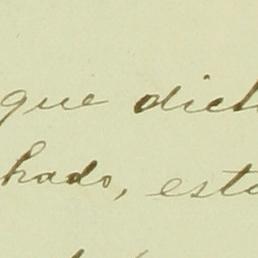 que dich
hado, esta